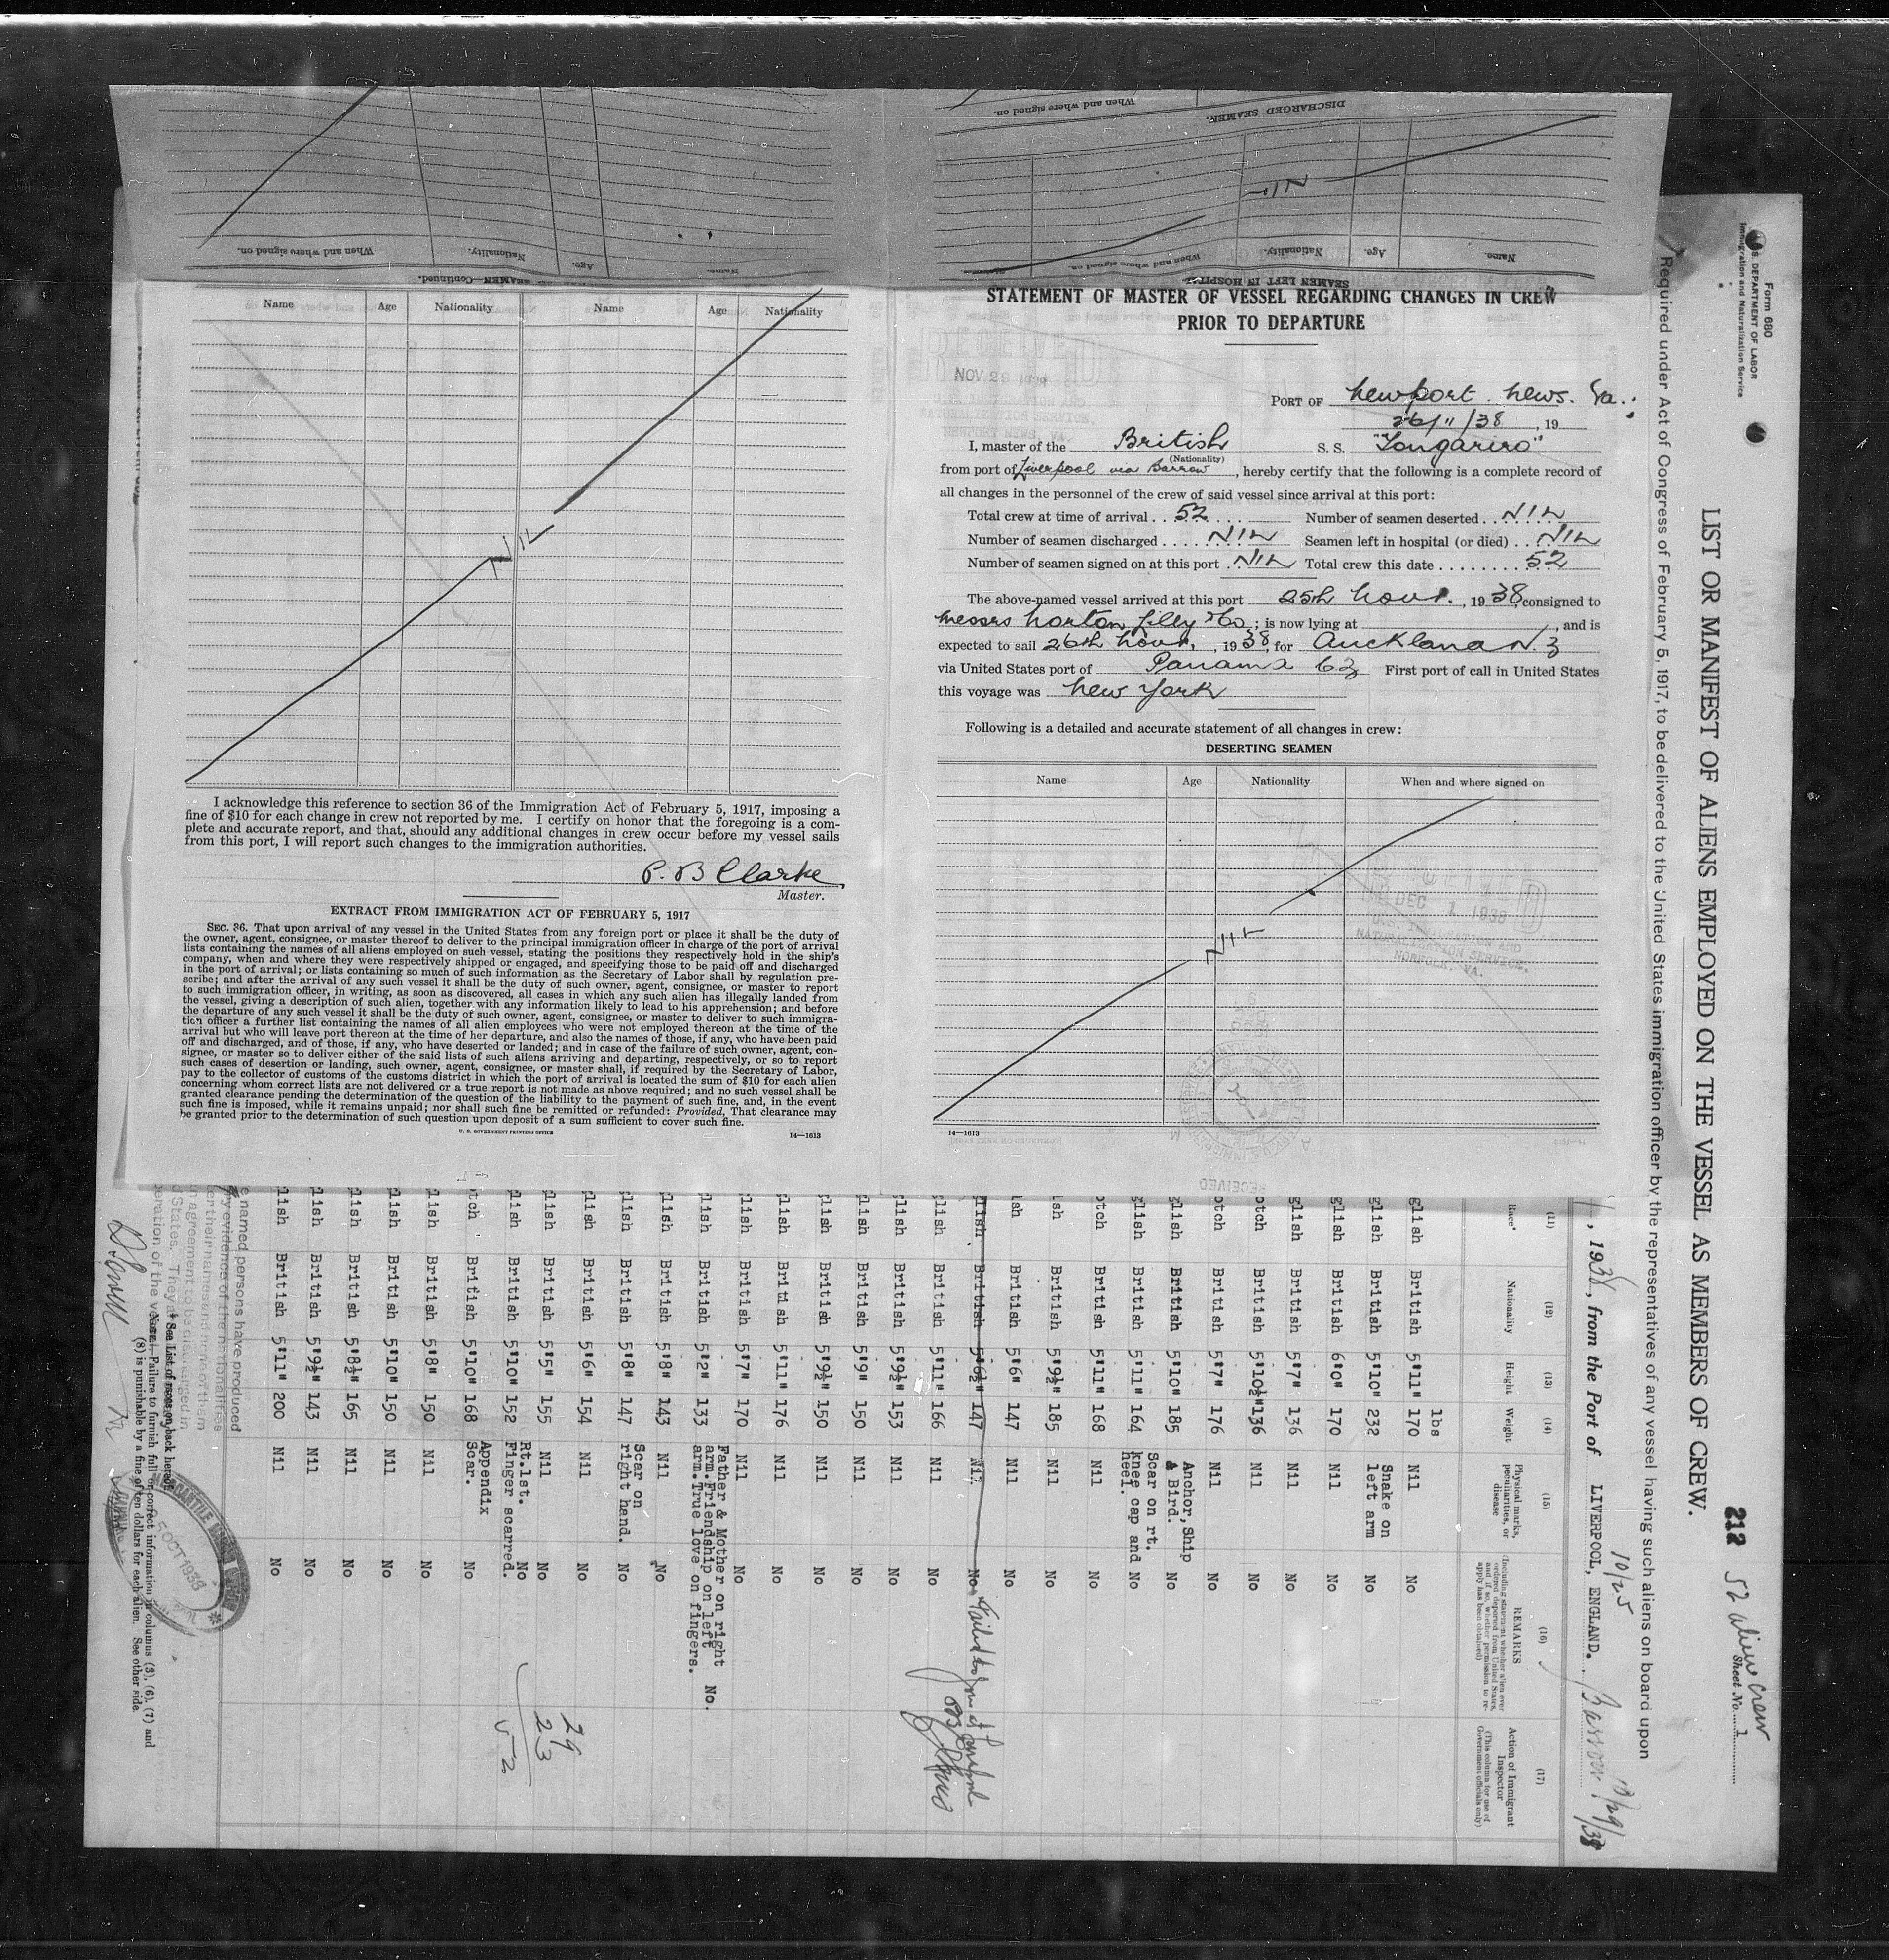 DISCHARGED SEAMEN.
When and where signed on.
SEAMEN LEFT IN HOSPITAL
Name. Age. Nationality. When and where signed on.
NIL
SEAMEN—Continued.
Name. Age. Nationality. When and where signed on.
Name Age Nationality Name Age Nationality
NIL
I acknowledge this reference to section 36 of the Immigration Act of February 5, 1917, imposing a
fine of $10 for each change in crew not reported by me. I certify on honor that the foregoing is a com-
plete and accurate report, and that, should any additional changes in crew occur before my vessel sails
from this port, I will report such changes to the immigration authorities.
P. B Clarke
Master.
EXTRACT FROM IMMIGRATION ACT OF FEBRUARY 5, 1917
SEC. 36. That upon arrival of any vessel in the United States from any foreign port or place it shall be the duty of
the owner, agent, consignee, or master thereof to deliver to the principal immigration officer in charge of the port of arrival
lists containing the names of all aliens employed on such vessel, stating the positions they respectively hold in the ship's
company, when and where they were respectively shipped or engaged, and specifying those to be paid off and discharged
in the port of arrival; or lists containing so much of such information as the Secretary of Labor shall by regulation pre-
scribe; and after the arrival of any such vessel it shall be the duty of such owner, agent, consignee, or master to report
to such immigration officer, in writing, as soon as discovered, all cases in which any such alien has illegally landed from
the vessel, giving a description of such alien, together with any information likely to lead to his apprehension; and before
the departure of any such vessel it shall be the duty of such owner, agent, consignee, or master to deliver to such immigra-
tion officer a further list containing the names of all alien employees who were not employed thereon at the time of the
arrival but who will leave port thereon at the time of her departure, and also the names of those, if any, who have been paid
off and discharged, and of those, if any, who have deserted or landed; and in case of the failure of such owner, agent, con-
signee, or master so to deliver either of the said lists of such aliens arriving and departing, respectively, or so to report
such cases of desertion or landing, such owner, agent, consignee, or master shall, if required by the Secretary of Labor,
pay to the collector of customs of the customs district in which the port of arrival is located the sum of $10 for each alien
concerning whom correct lists are not delivered or a true report is not made as above required; and no such vessel shall be
granted clearance pending the determination of the question of the liability to the payment of such fine, and, in the event
such fine is imposed, while it remains unpaid; nor shall such fine be remitted or refunded: Provided, That clearance may
be granted prior to the determination of such question upon deposit of a sum sufficient to cover such fine.
U. S. GOVERNMENT PRINTING OFFICE 14—1613
STATEMENT OF MASTER OF VESSEL REGARDING CHANGES IN CREW
PRIOR TO DEPARTURE
NOV 29
PORT OF Newport News. Va.
26/11/38, 19
I, master of the British S. S. "Tongariro"
(Nationality)
from port of Liverpool via Barrow, hereby certify that the following is a complete record of
all changes in the personnel of the crew of said vessel since arrival at this port:
Total crew at time of arrival 52 Number of seamen deserted NIL
Number of seamen discharged NIL Seamen left in hospital (or died) NIL
Number of seamen signed on at this port NIL Total crew this date 52
The above-named vessel arrived at this port 25th Novr., 1938, consigned to
Messrs Norton Lilly & Co; is now lying at , and is
expected to sail 26th Novr., 1938, for Auckland N.Z
via United States port of Panama CZ First port of call in United States
this voyage was New York
Following is a detailed and accurate statement of all changes in crew:
DESERTING SEAMEN
Name Age Nationality When and where signed on
NIL
RECEIVED
DEC 1 1938
NATURALIZATION SERVICE.
NORFOLK, VA.
14—1613
RECEIVED
Form 680
U. S. DEPARTMENT OF LABOR
Immigration and Naturalization Service
212 52 alien crew
Sheet No. 1
LIST OR MANIFEST OF ALIENS EMPLOYED ON THE VESSEL AS MEMBERS OF CREW.
Required under Act of Congress of February 5, 1917, to be delivered to the United States immigration officer by the representatives of any vessel having such aliens on board upon
10/25
, 1938, from the Port of LIVERPOOL, ENGLAND. Barrow 10/29/38
(11) (12) (13) (14) (15) (16) (17)
Race* Nationality Height Weight Physical marks, peculiarities, or disease REMARKS (Including statement whether alien ever ordered deported from United States, and if so, whether permission to re-apply has been obtained) Action of Immigrant Inspector (This column for use of Government officials only)
lbs
glish British 5'11" 170 Nil No
glish British 5'10" 232 Snake on left arm No
glish British 6'0" 170 Nil No
glish British 5'7" 136 Nil No
otch British 5'10½" 136 Nil No
otch British 5'7" 176 Nil No
glish British 5'10" 185 Anchor, Ship & Bird. No
glish British 5'11" 164 Scar on rt. knee cap and heel. No
otch British 5'11" 168 Nil No
ish British 5'9½" 185 Nil No
ish British 5'6" 147 Nil No
lish British 5'6½" 147 Nil No Failed to join
lish British 5'11" 166 Nil No
lish British 5'9½" 153 Nil No
lish British 5'9" 150 Nil No
lish British 5'9½" 150 Nil No
lish British 5'11" 176 Nil No
lish British 5'7" 170 Nil No
lish British 5'2" 133 Father & Mother on right arm. Friendship on left arm. True love on fingers. No.
lish British 5'8" 143 Nil No
lish British 5'8" 147 Scar on right hand. No
lish British 5'6" 154 Nil No
lish British 5'5" 155 Nil No
lish British 5'10" 152 Rt. 1st. Finger scarred. No
otch British 5'10" 168 Appendix Scar. No
lish British 5'8" 150 Nil No
lish British 5'10" 150 Nil No
lish British 5'8½" 165 Nil No
lish British 5'9½" 143 Nil No
lish British 5'11" 200 Nil No
29
23
52
e named persons have produced
* See List of races on back hereof.
NOTE.—Failure to furnish full or correct information in columns (3), (6), (7) and
(8) is punishable by a fine of ten dollars for each alien. See other side.
MERCANTILE MARINE OFFICE
25 OCT 1938